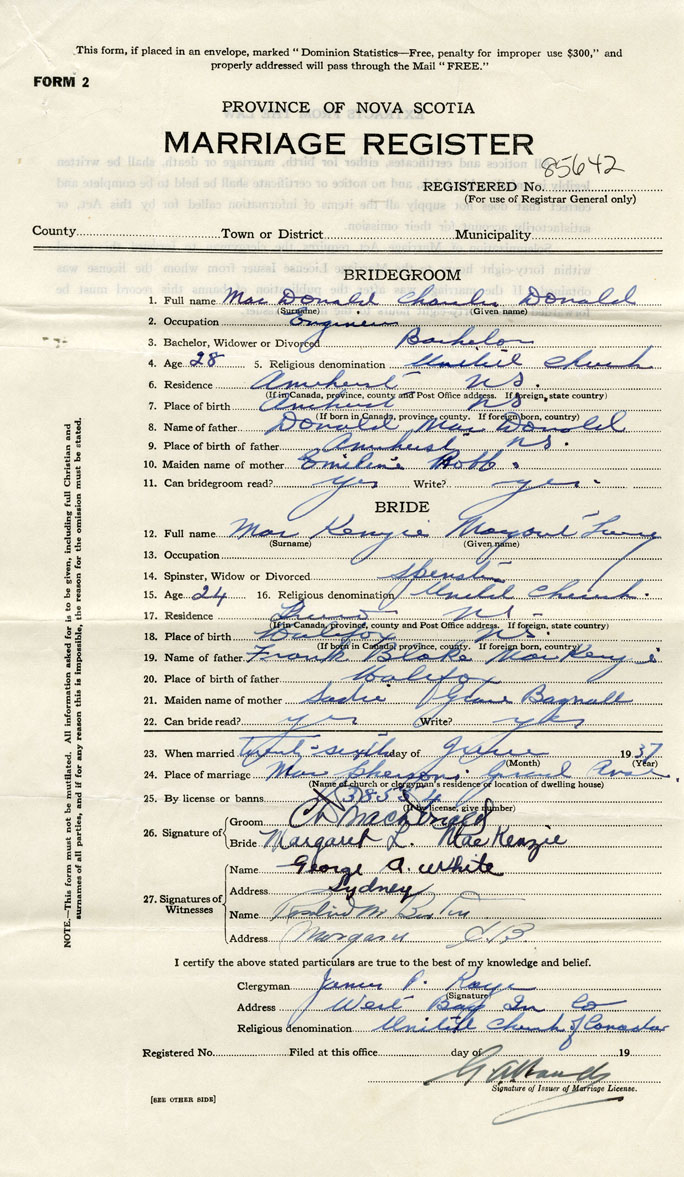 This form, if placed in an envelope, marked "Dominion Statistics—Free, penalty for improper use $300," and
properly addressed will pass through the Mail "FREE."
FORM 2
PROVINCE OF NOVA SCOTIA
MARRIAGE REGISTER
REGISTERED No. 85642
(For use of Registrar General only)
County Town or District Municipality
BRIDEGROOM
1. Full name Mac Donald Charles Donald
(Surname) (Given name)
2. Occupation Engineer
3. Bachelor, Widower or Divorced Bachelor
4. Age 28 5. Religious denomination United Church
6. Residence Amherst N.S.
(If in Canada, province, county and Post Office address. If foreign, state country)
7. Place of birth Amherst N.S.
(If born in Canada, province, county. If foreign born, country)
8. Name of father Donald Mac Donald
9. Place of birth of father Amherst N.S.
10. Maiden name of mother Emiline Robb
11. Can bridegroom read? yes Write? yes
BRIDE
12. Full name Mac Kenzie
(Surname) (Given name)
13. Occupation
14. Spinster, Widow or Divorced Spinster
15. Age 24 16. Religious denomination United Church
17. Residence Truro N.S.
(If in Canada, province, county and Post Office address. If foreign, state country)
18. Place of birth Halifax N.S.
(If born in Canada, province, county. If foreign born, country)
19. Name of father Frank Blake MacKenzie
20. Place of birth of father Halifax
21. Maiden name of mother Sadie Bagnall
22. Can bride read? yes Write? yes
23. When married Twenty-sixth day of June 1937
(Month) (Year)
24. Place of marriage Mac Phersons
(Name of church or clergyman's residence or location of dwelling house)
25. By license or banns
(If by license, give number)
26. Signature of Groom C.D. MacDonald
Bride Margaret L. MacKenzie
27. Signatures of Witnesses
Name George A. White
Address Sydney
Name
Address
I certify the above stated particulars are true to the best of my knowledge and belief.
Clergyman James P. Kaye
(Signature)
Address West Bay In Co
Religious denomination United Church of Canada
Registered No. Filed at this office day of 19
Signature of Issuer of Marriage License.
[SEE OTHER SIDE]
NOTE.—This form must not be mutilated. All information asked for is to be given, including full Christian and
surnames of all parties, and if for any reason this is impossible, the reason for the omission must be stated.